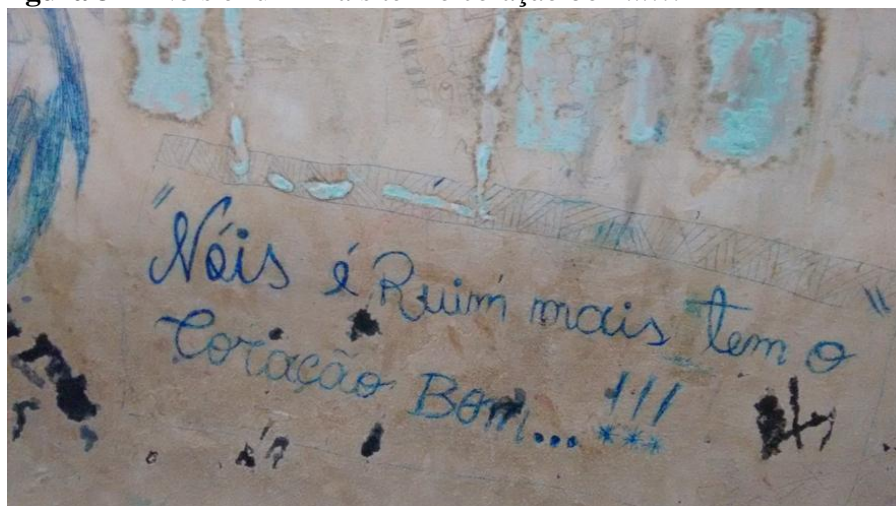 "Nóis é Ruim mais tem o "
Coração Bom...!!!